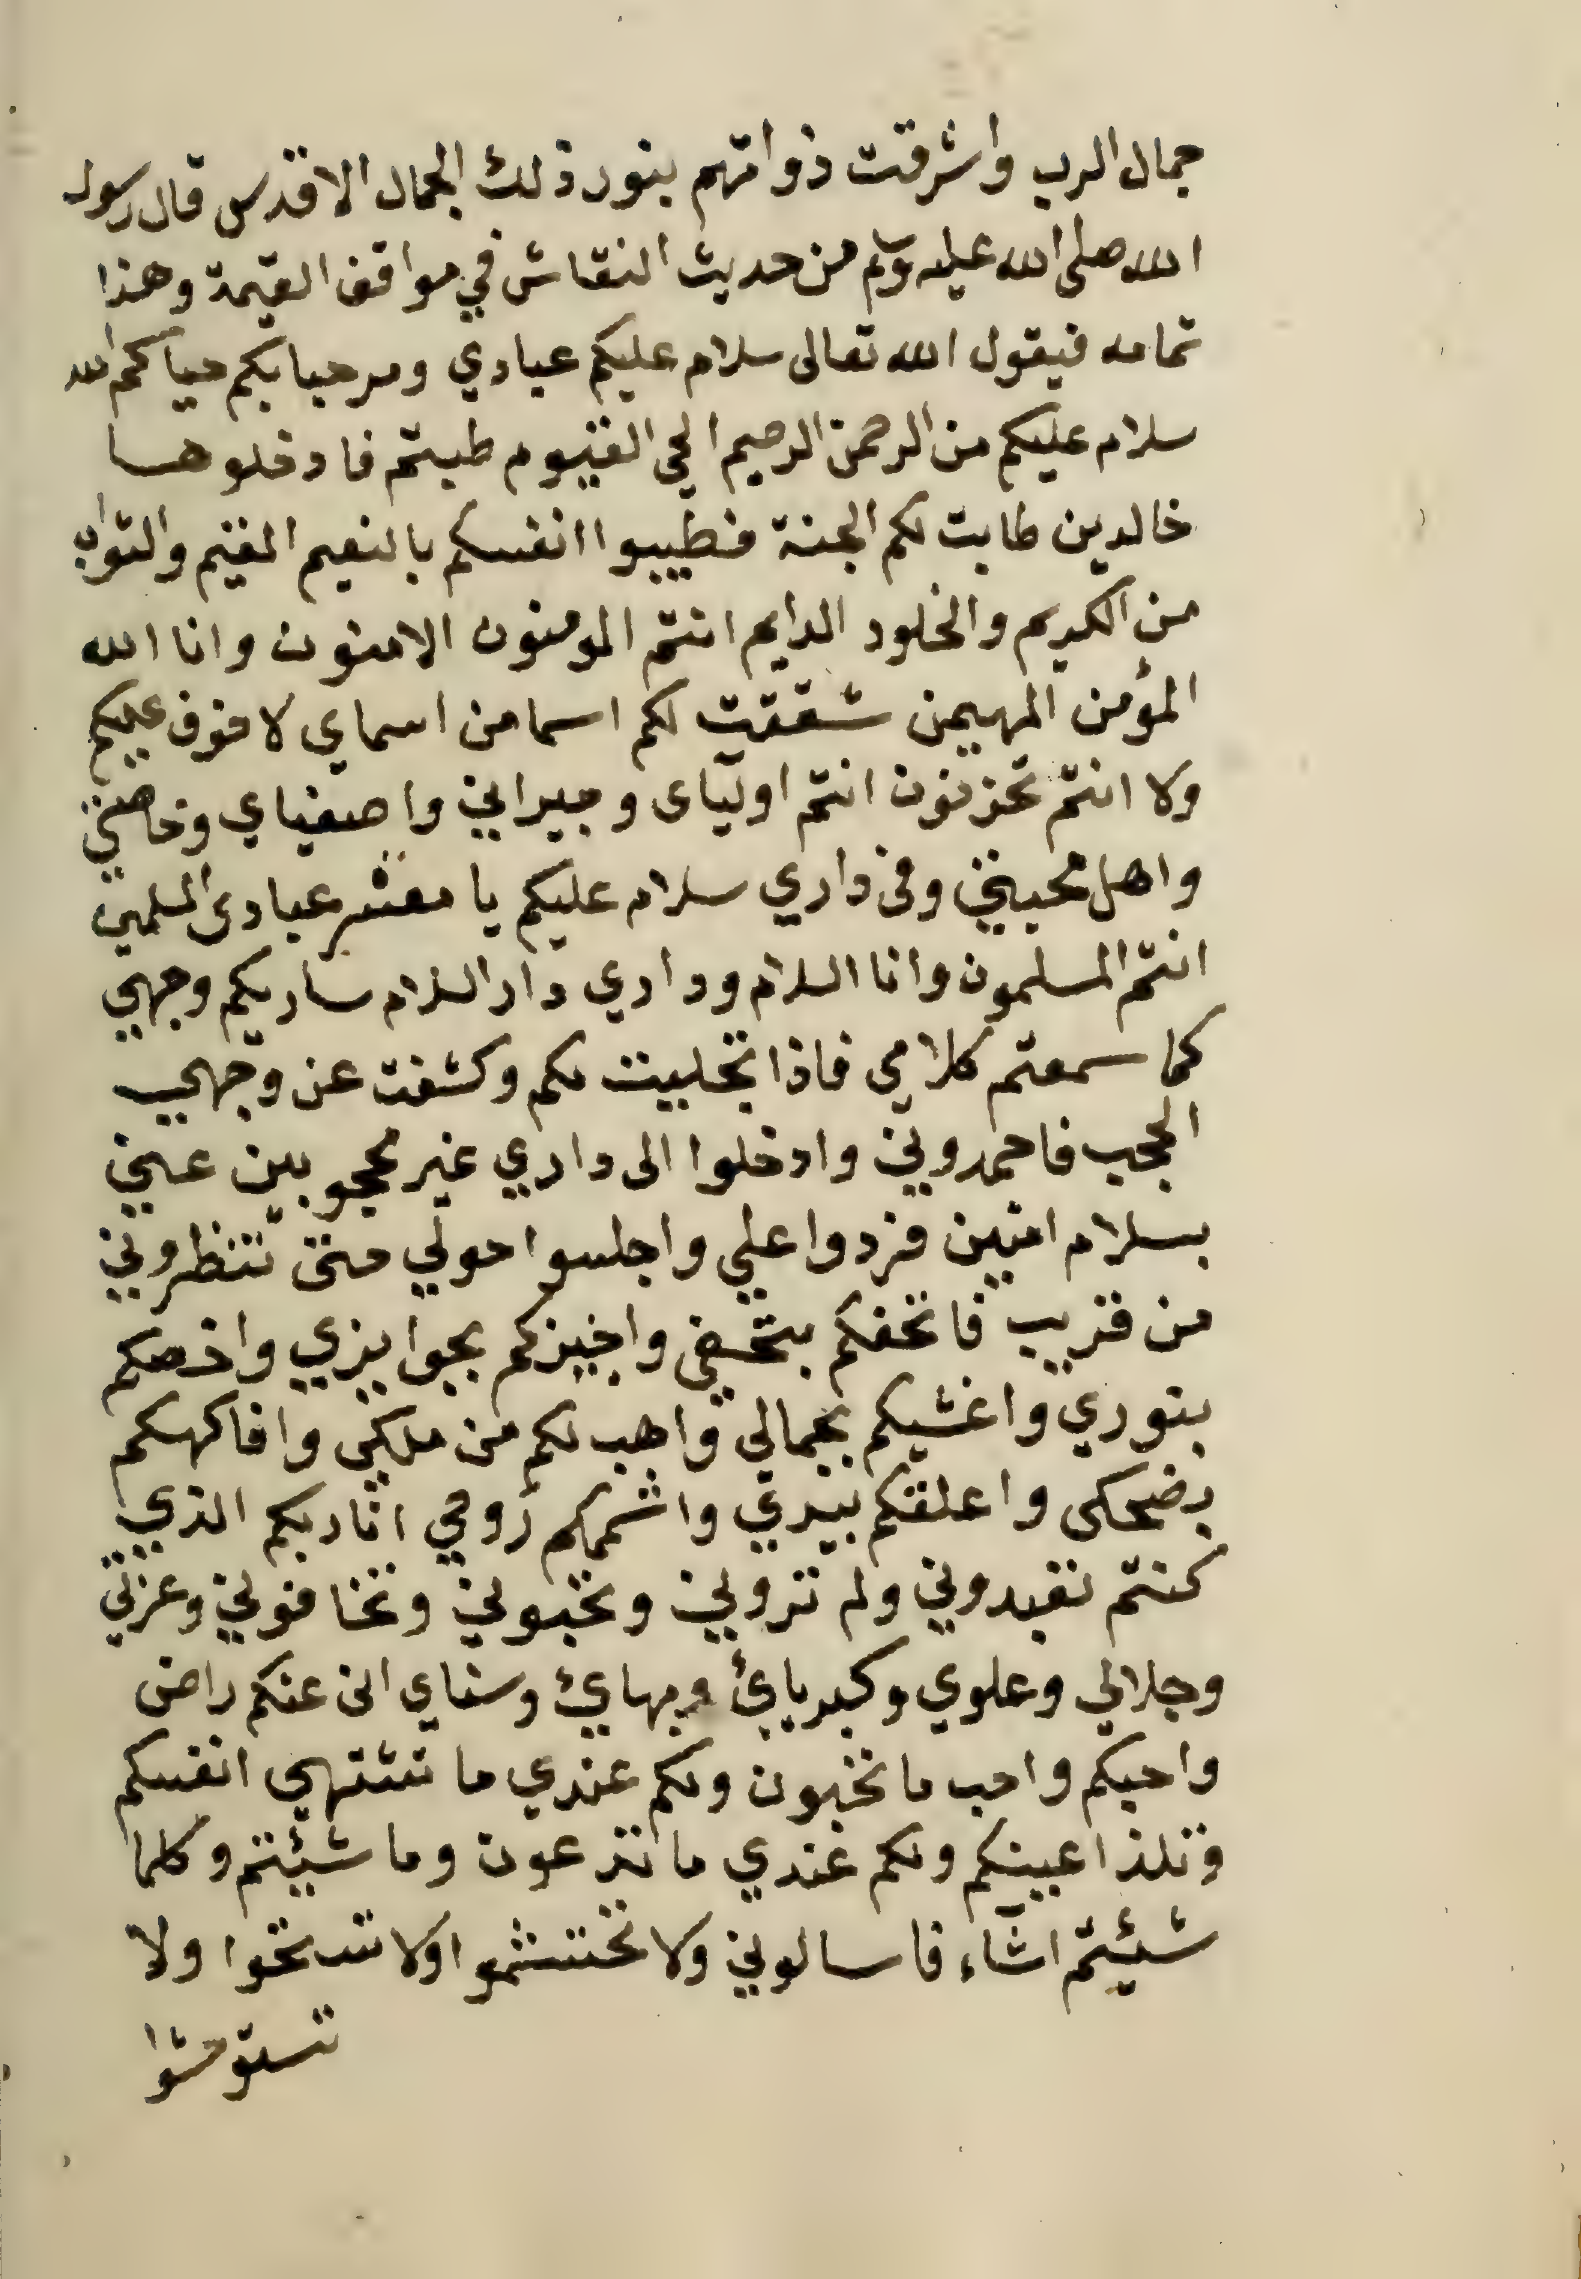 جمال الرب واشرقت ذواتهم بنور ذلك الجمال الاقدس قال رسول
الله صلى الله عليه وسلم من حديث النقاش في مواقف القيمة وهذا
تمامه فيقول الله تعالى سلام عليكم عبادي ومرحبا بكم حياكم الله
سلام عليكم من الرحمن الرحيم الحي القيوم طبتم فادخلوها
خالدين طابت لكم الجنة فطيبوا انفسكم بالنعيم المقيم والثواب
من الكريم والخلود الدايم انتم المومنون الامنون وانا الله
المؤمن المهيمن شققت لكم اسما من اسماي لا خوف عليكم
ولا انتم تحزنون انتم اولياى وجيراني واصفياي وخاصتي
واهل محبتي وفى داري سلام عليكم يا معشر عبادى المسلمين
انتم المسلمون وانا السلام وداري دار السلام ساريكم وجهي
كما سمعتم كلامي فاذا تجليت لكم وكشفت عن وجهي
الحجب فاحمدوني وادخلوا الى داري غير محجوبين عني
بسلام امنين فردوا علي واجلسوا حولي حتى تنظروني
من قريب فاتحفكم بتحفي واجيزكم بجوايزي واخصكم
بنوري واغشيكم بجمالي واهب لكم من ملكي وافاكهكم
بضحكى واغلقكم بيدي واشمكم روحي انا ربكم الذي
كنتم تعبدوني ولم تروني وتحبوني وتخافوني وعزتي
وجلالي وعلوي وكبريائ وبهائ وسناي انى عنكم راض
واحبكم واحب ما تحبون ولكم عندي ما تشتهي انفسكم
وتلذ اعينكم ولكم عندي ما تدعون وما شيئتم وكلما
شيئتم اشاء فاسالوني ولا تحتشموا ولا تستحوا ولا
تستوحشوا